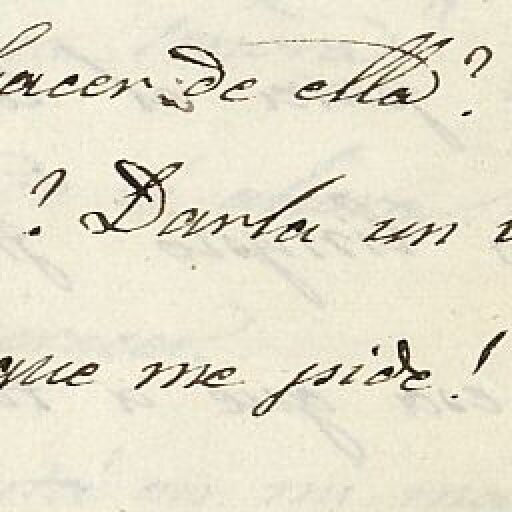 hacer de ella?
? Darla un
que me pide!